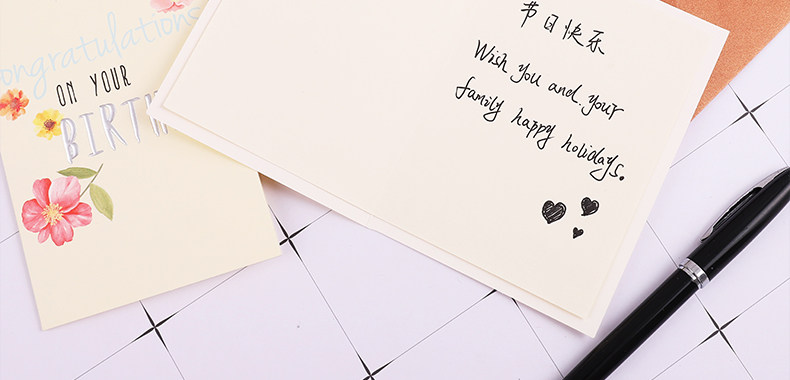 Congratulations
ON YOUR
BIRTH
节日快乐
Wish you and your
family happy holidays.